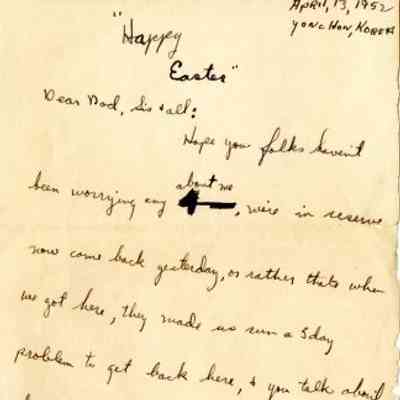 April, 13, 1952
Yonc Hon, Korea
"Happy
Easter"
Dear Dad, Sis & all:
Hope you folks haven't
about me
been worrying any , we're in reserve
now come back yesterday, or rather thats when
we got here, they made us run a 3 day
problem to get back here, & you talk about